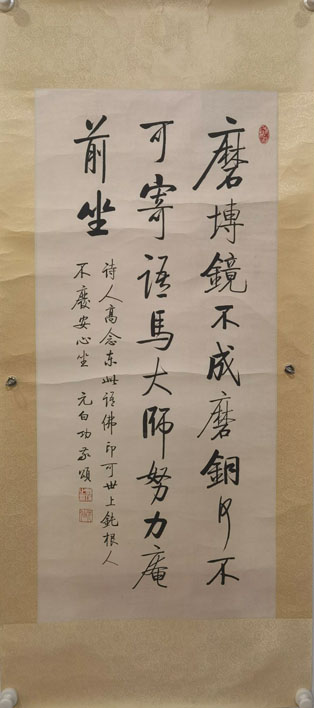 磨塼鏡不成磨銅何不
可寄語馬大師努力庵
前坐
诗人高念东此语佛印可世上鈍根人
不廢安心坐 元白功敬頌